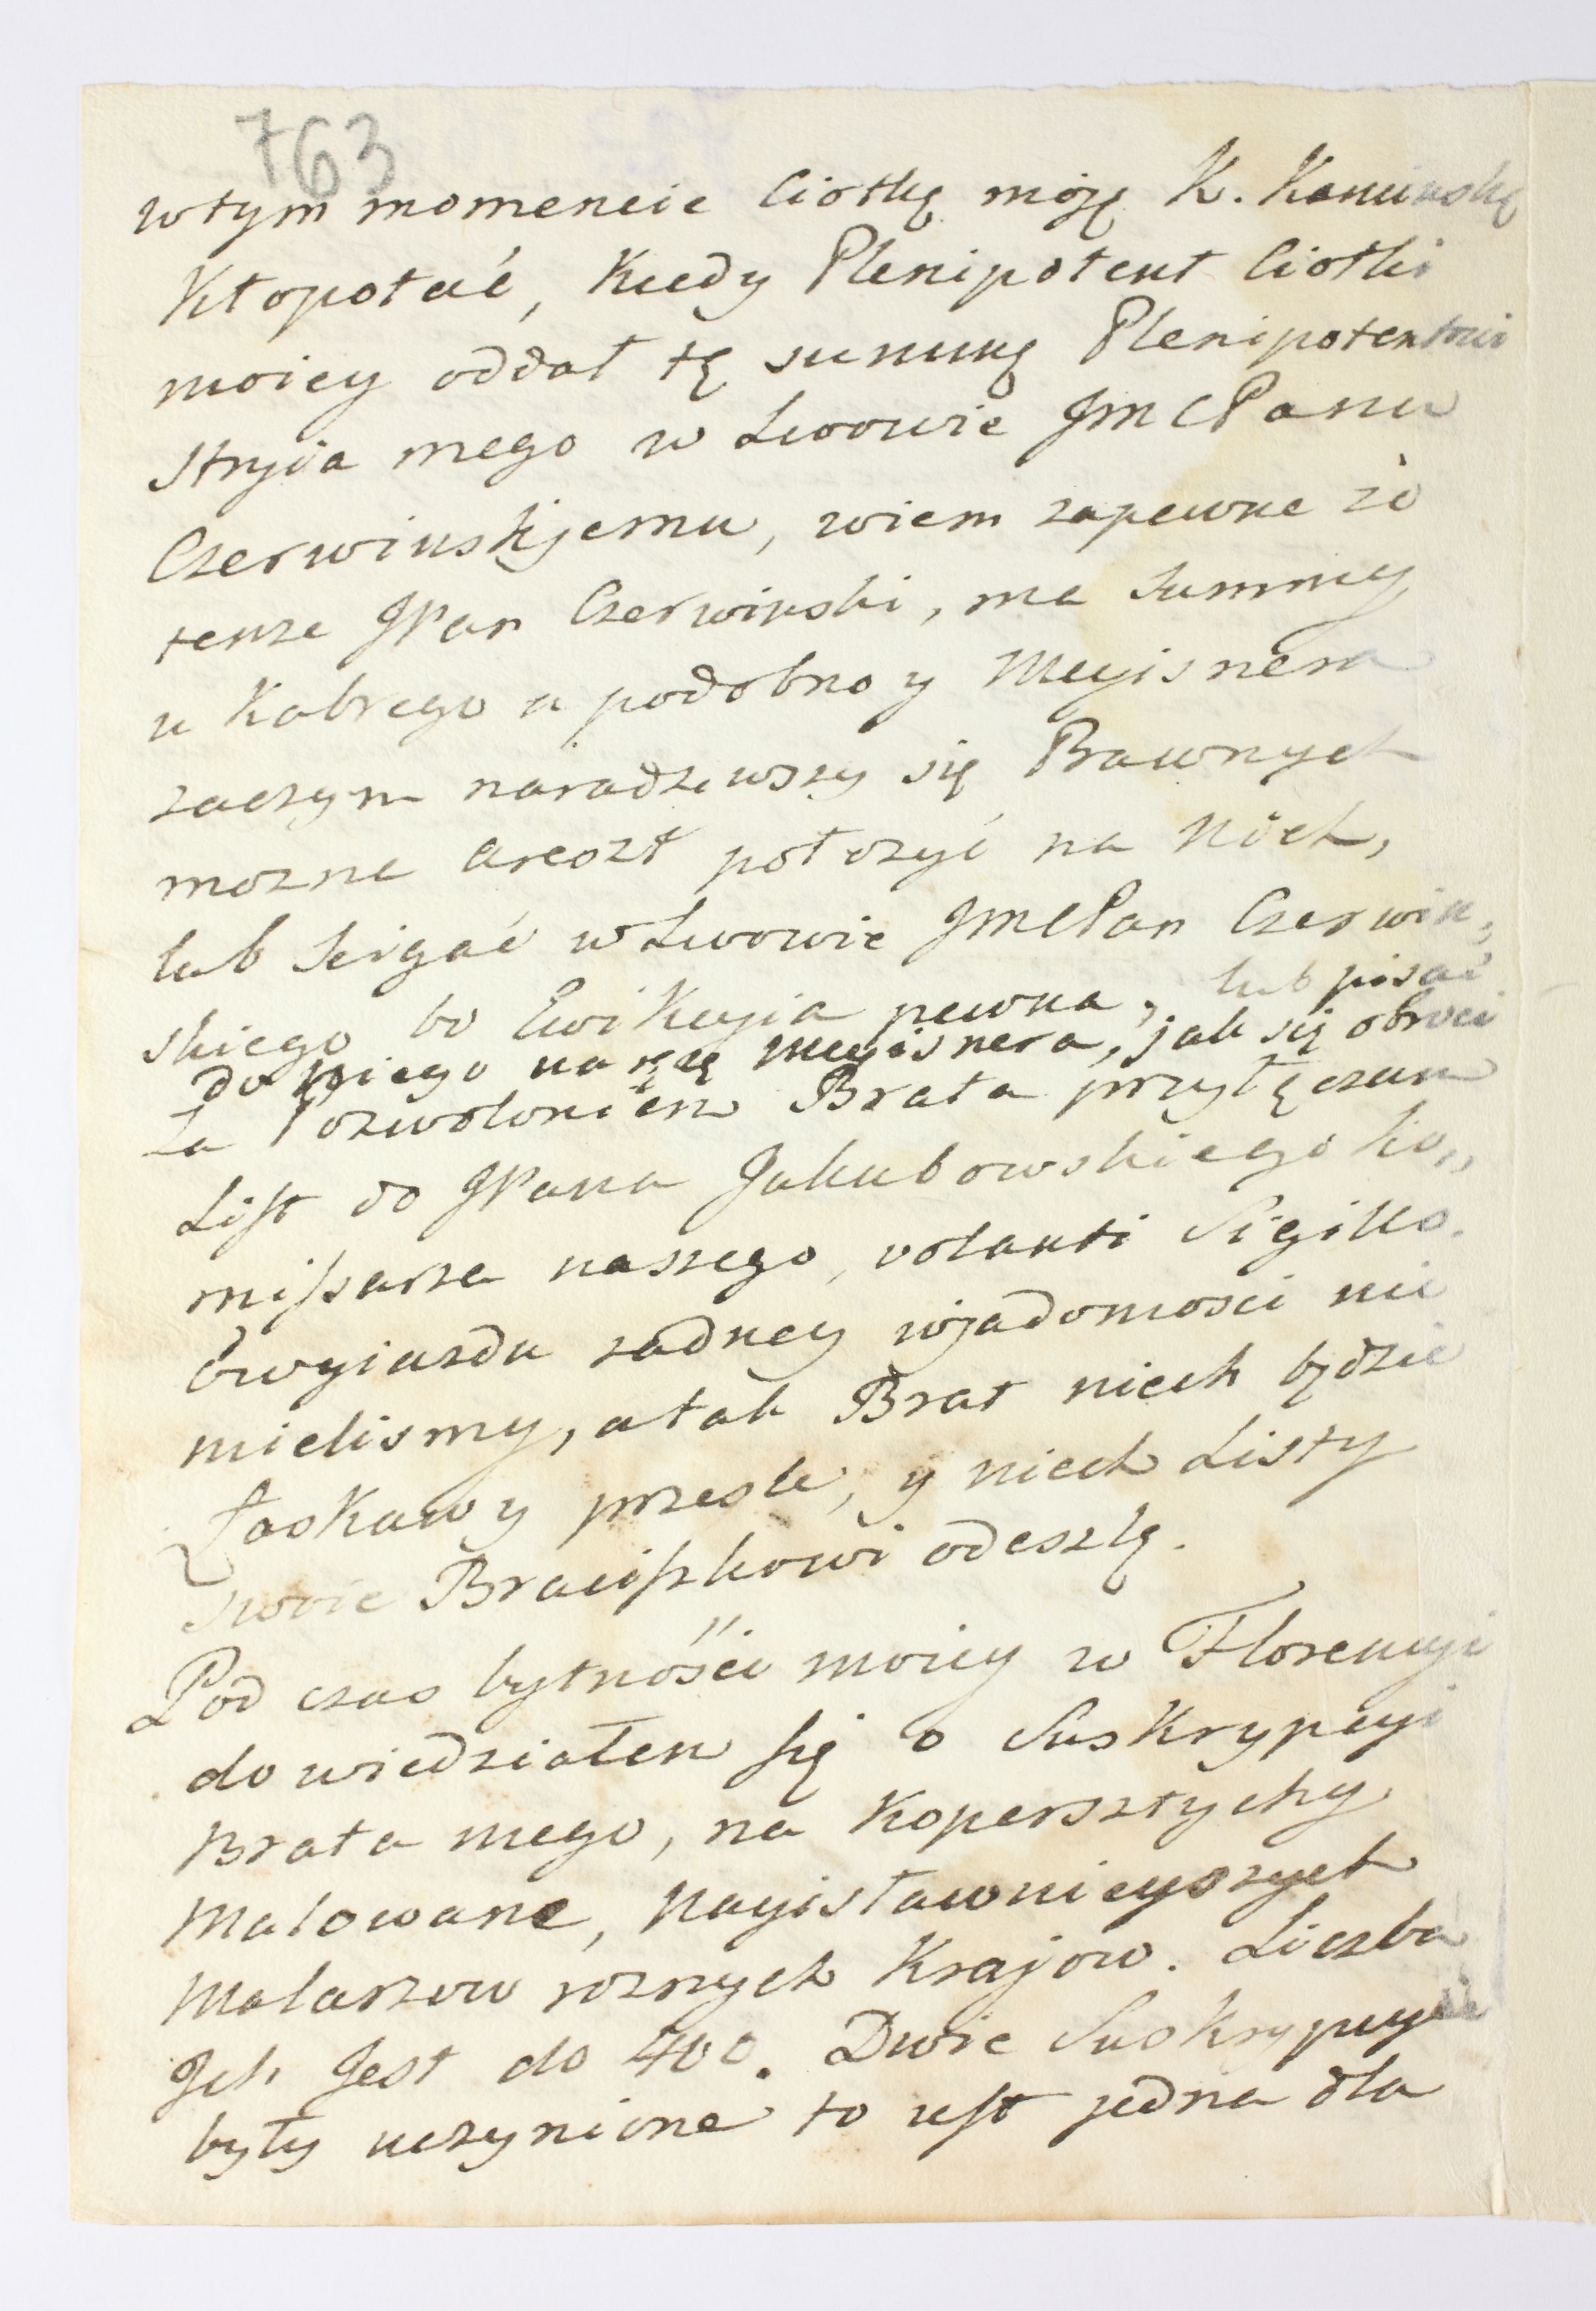 763
wtym momencie Ciotkę moję K. Kaminską
Kłopotać, Kiedy Plenipotent Ciotki
moiey oddał tę summę Plenipotentowi
Stryia mego w Lwowie JMCPanu
Czerwinskjemu, wiem zapewne że
tenże JPan Czerwinski, ma Summy
u Kabrego a podobno y Meyisnera
zaczym naradziwszy się Prawnych
mozna areszt położyć na Nich,
lub scigać w Lwowie JMCPan Czerwin,
skiego bo Ewikcyia pewna, lub pisać
do Niego na ręcę Meyisnera, jak się obroci
Za Pozwoleniem Brata przyłęczam
List do JPana Jakubowskiego ko,,
missarza naszego, volanti Sigillo.
Owyiazdu zadney wjadomosci nie
mielismy, a tak Brat niech będzie
Łaskawy przesle, y niech Listy
swoie Braciszkowi odeszlę.
Pod czas bytnośći moiey w Florencyi
dowiedziałem się o Suskrypcyi
Brata mego, na Kopersztychy
Malowane, Nayisławnieyszych
Malarzow roznych Krajow. Liczba
Jch Jest do 400. Dwie Suskrypcyie
były uczynione to iest jedna dla